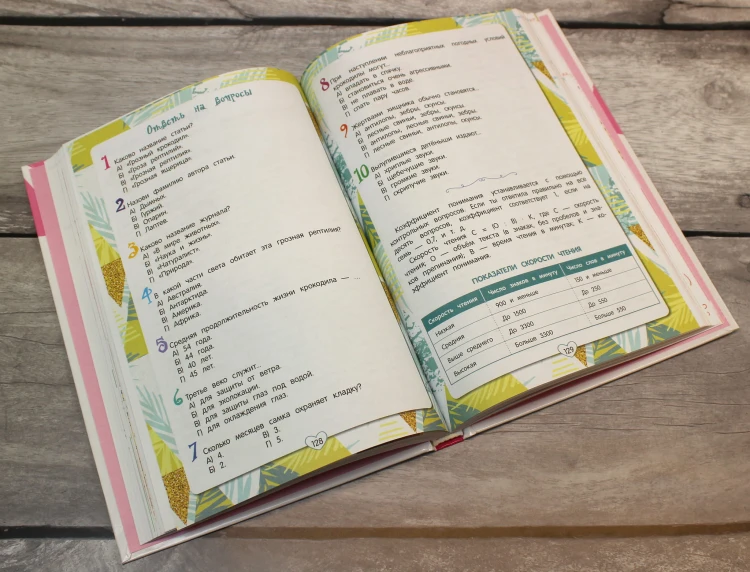 Ответь на вопросы
1 Каково название статьи?
А) «Грозный крокодил».
Б) «Гроза рептилий».
В) «Грозная рептилия».
Г) «Грозная ящерица».
2 Назови фамилию автора статьи.
А) Дымных.
Б) Гуржий.
В) Опарин.
Г) Лаптев.
3 Каково название журнала?
А) «В мире животных».
Б) «Наука и жизнь».
В) «Натуралист».
Г) «Природа».
4 В какой части света обитает эта грозная рептилия?
А) Австралия.
Б) Антарктида.
В) Америка.
Г) Африка.
5 Средняя продолжительность жизни крокодила —
А) 54 года.
Б) 44 года.
В) 40 лет.
Г) 45 лет.
6 Третье веко служит...
А) для защиты от ветра.
Б) для эхолокации.
В) для защиты глаз под водой.
Г) для охлаждения глаз.
7 Сколько месяцев самка охраняет кладку?
А) 4. В) 3.
Б) 2. Г) 5.
128
8 При наступлении неблагоприятных погодных условий
крокодилы могут...
А) впадать в спячку.
Б) становиться очень агрессивными.
В) не плавать в воде.
Г) спать пару часов.
9 Жертвами хищника обычно становятся...
А) антилопы, зебры, скунсы.
Б) лесные свиньи, зебры, скунсы.
В) антилопы, лесные свиньи, зебры.
Г) лесные свиньи, антилопы, скунсы.
10 Вылупившиеся детёныши издают...
А) хриплые звуки.
Б) щебечущие звуки.
В) громкие звуки.
Г) скрипучие звуки.
Коэффициент понимания устанавливается с помощью
контрольных вопросов. Если ты ответила правильно на все
десять вопросов, коэффициент соответствует 1, если на
семь — 0,7 и т. д.
Скорость чтения С = (О : В) · К, где С — скорость
чтения; О — объём текста (в знаках, без пробелов и зна-
ков препинания); В — время чтения в минутах, К — ко-
эффициент понимания.
ПОКАЗАТЕЛИ СКОРОСТИ ЧТЕНИЯ
Скорость чтения Число знаков в минуту Число слов в минуту
Низкая 900 и меньше 150 и меньше
Средняя До 1500 До 250
Выше среднего До 3300 До 550
Высокая Больше 3300 Больше 550
129